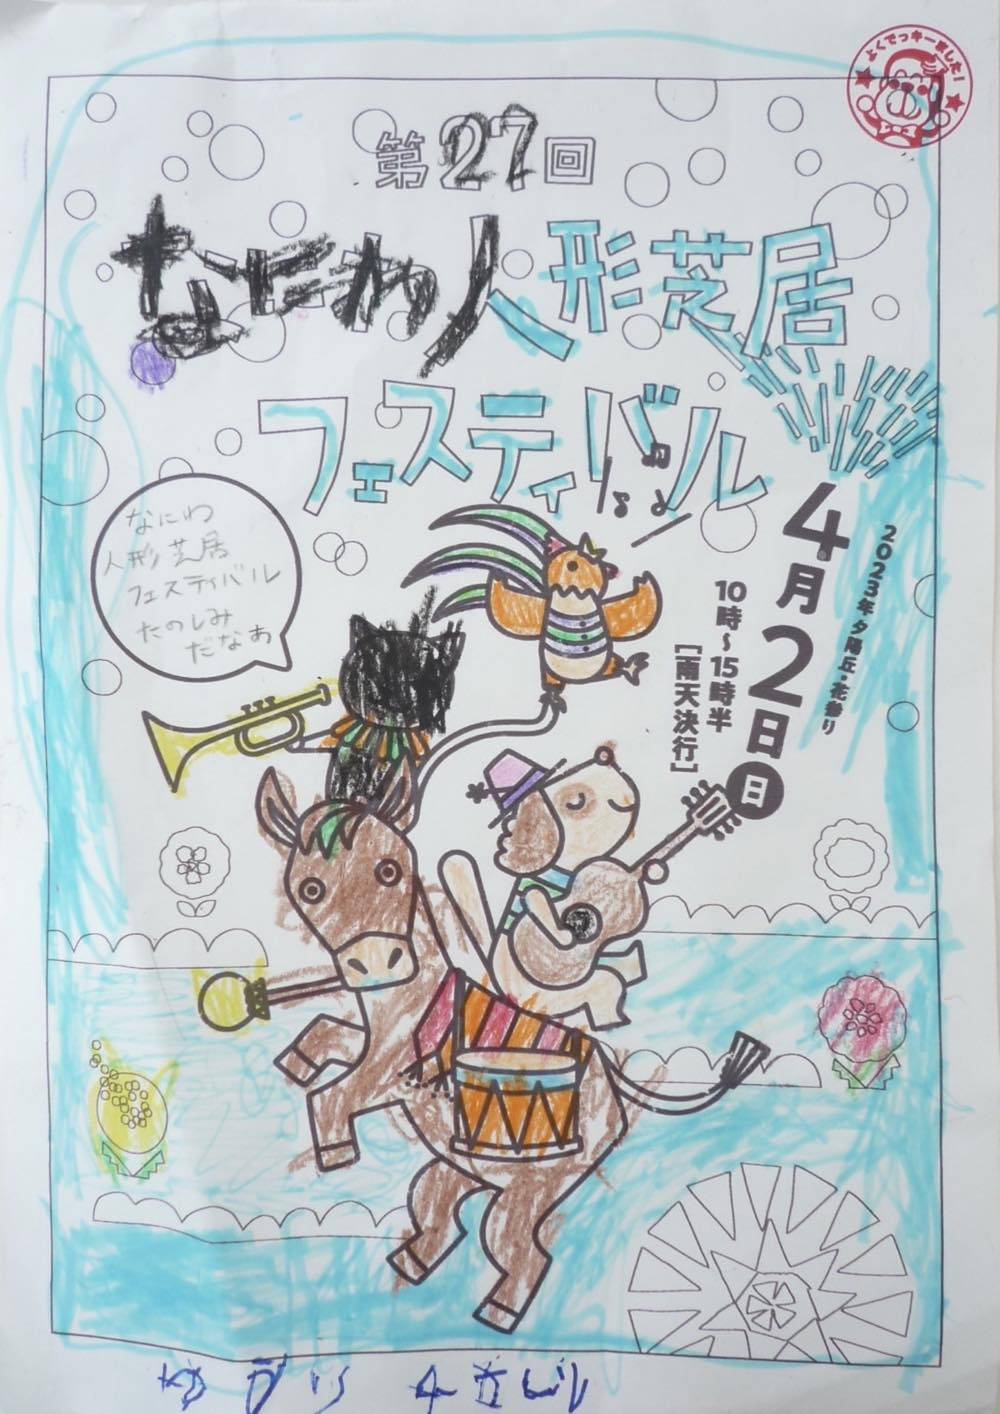 よくでっキーました!
第27回
なにわ人形芝居
フェスティバル
2023年夕陽丘・花祭り
4月2日日
10時〜15時半
[雨天決行]
なにわ
人形芝居
フェスティバル
たのしみ
だなあ